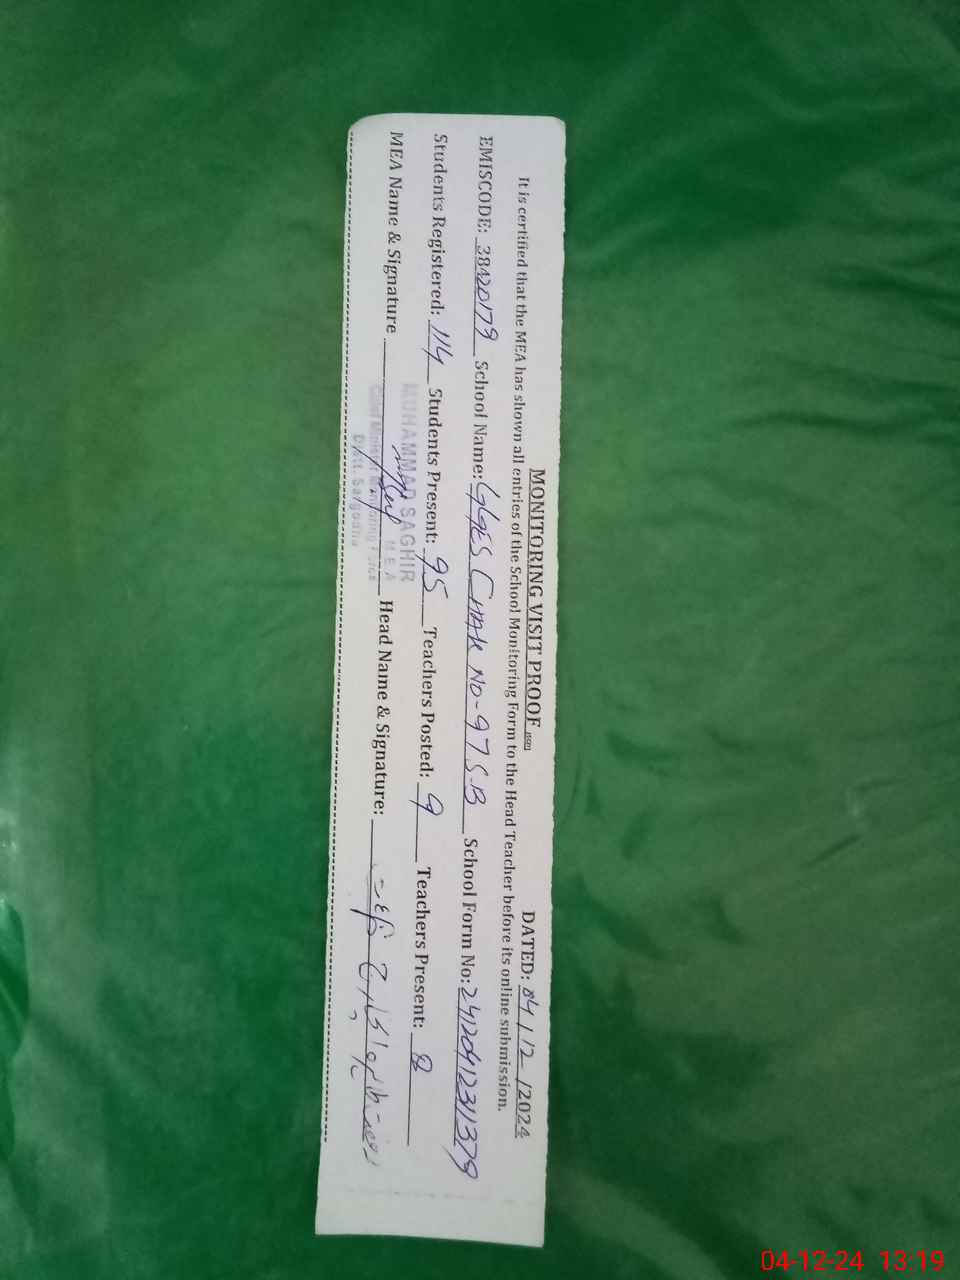 MONITORING VISIT PROOF DATED: 04/12/2024
It is certified that the MEA has shown all entries of the School Monitoring Form to the Head Teacher before its online submission.
EMISCODE: 38420179 School Name: GGES CHAK NO-97 S.B School Form No: 24120412311379
Students Registered: 114 Students Present: 95 Teachers Posted: 9 Teachers Present: 8
MUHAMMAD SAGHIR
M E A
MEA Name & Signature Head Name & Signature:
Chief Minister Monitoring Force
Distt. Sargodha
04-12-24 13:19